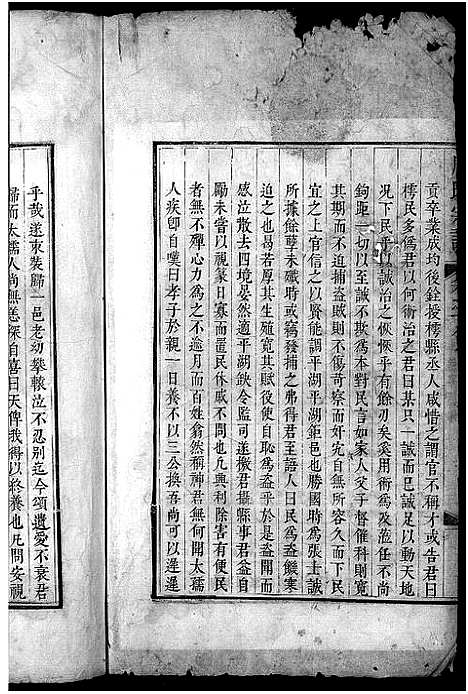 貢卒業成均後銓授樗縣丞人咸惜之謂官不稱才或告君曰
樗民多為君以何術治之君曰某只一誠而已誠足以動天地
况下民乎以誠治之恢恢乎有餘刃矣奚用術為及涖任不尚
鉤距一切以至誠不欺為本對民言如家人父子督催科則寛
其期而示以迫捕盜賊則不傷苛察而奸宄自無所容久而下民
宜之上官信之以賢能調平湖平湖鉅邑也勝國時為張士誠
所據餘孽未殱時或竊發捕之弗得君至語人曰民為盜饑寒
迫之也奔若厚其生殖寛其賦役使自恥為盜乎於是盜聞而
感泣散去四境晏然適平湖欽令監司遂檄君攝縣事君益自
勵未嘗以視篆日寡而置民休戚不問也凡興利除害有便民
者無不殫心力為之不逾月而百姓翕然稱神君無何聞太孺
人疾卽自嘆曰孝子於親一日養不以三公換吾尚可以遲遲
乎哉遂束裝歸一邑老幼攀轅泣不忍别迄今頌遺愛不衰君
歸而太孺人尚無恙深自喜曰天俾我得以終養也凡問安視